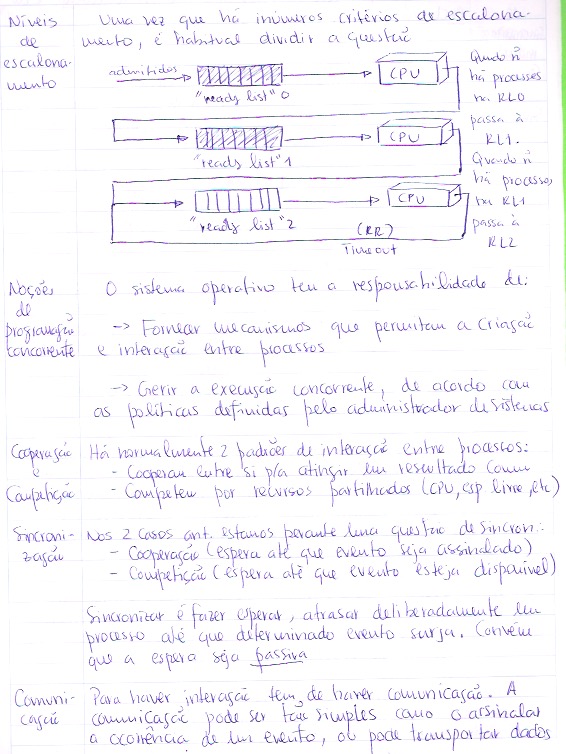 Níveis
de
escalona-
mento
Uma vez que há inúmeros critérios de escalona-
mento, é habitual dividir a questão
admitidos
CPU
"ready list" 0
CPU
"ready list" 1
CPU
"ready list" 2
(RR)
Timeout
Quando ñ
há processos
na RL0
passa à
RL1.
Quando ñ
há processos,
na RL1
passa à
RL2
Noções
de
programação
concorrente
O sistema operativo tem a responsabilidade de:
-> Fornecer mecanismos que permitam a criação
e interação entre processos
-> Gerir a execução concorrente, de acordo com
as políticas definidas pelo administrador de sistemas
Cooperação
e
Competição
Há normalmente 2 padrões de interacção entre processos:
- Cooperam entre si p/a atingir um resultado comum
- Competem por recursos partilhados (CPU, esp livre, etc)
Sincroni-
zação
Nos 2 casos ant. estamos perante uma questão de sincron.:
- Cooperação (espera até que evento seja assinalado)
- Competição (espera até que evento esteja disponível)
Sincronizar é fazer esperar, atrasar deliberadamente um
processo até que determinado evento surja. Convém
que a espera seja passiva
Comuni-
cação
Para haver interação tem de haver comunicação. A
comunicação pode ser tão simples como o assinalar
a ocorrência de um evento, ou pode transportar dados